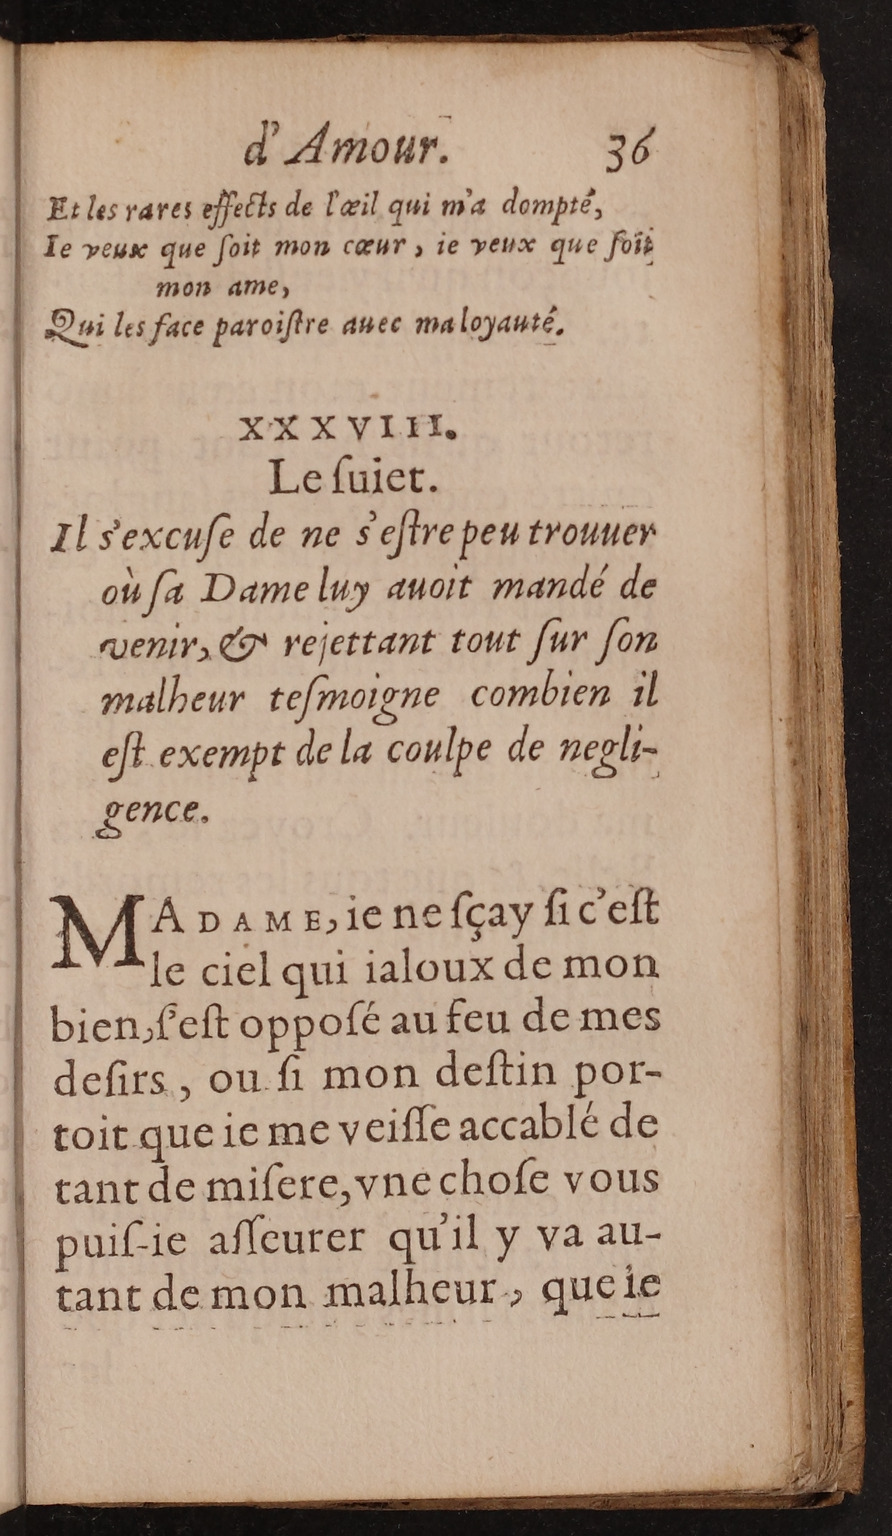 d'Amour. 36
Et les rares effects de l'œil qui m'a dompté,
Ie veux que ſoit mon cœur, ie veux que ſoit
mon ame,
Qui les face paroiſtre auec ma loyauté.
XXXVIII.
Le ſuiet.
Il s'excuſe de ne s'eſtre peu trouuer
où ſa Dame luy auoit mandé de
venir, & rejettant tout ſur ſon
malheur teſmoigne combien il
eſt exempt de la coulpe de negli-
gence.
MADAME, ie ne ſçay ſi c'eſt
le ciel qui ialoux de mon
bien, ſ'eſt oppoſé au feu de mes
deſirs, ou ſi mon deſtin por-
toit que ie me veiſſe accablé de
tant de miſere, vne choſe vous
puiſ-ie aſſeurer qu'il y va au-
tant de mon malheur, que ie